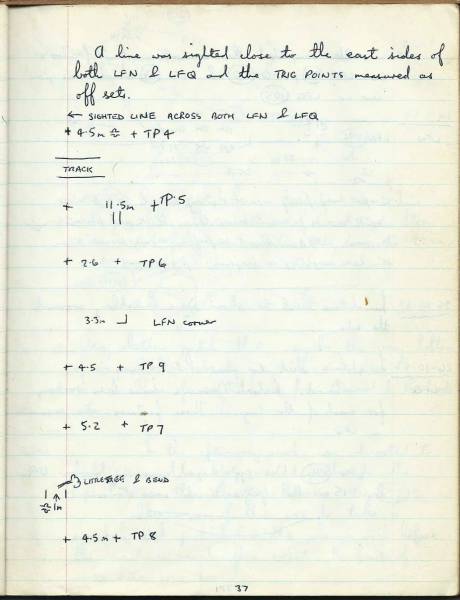 A line was sighted close to the east sides of
both LFN & LFQ and the TRIG POINTS measured as
off sets.
← SIGHTED LINE ACROSS BOTH LFN & LFQ
+ 4.5m + TP4
TRACK
+ 11.5m + TP.5
+ 2.6 + TP6
3.5m LFN corner
+ 4.5 + TP 9
+ 5.2 + TP7
& BEND
1m
+ 4.5m + TP 8
37